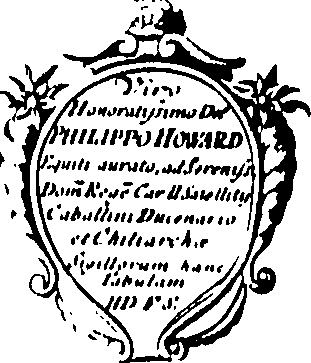 Viro
Honoratissimo Dno
PHILIPPO HOWARD
Equiti aurato, ad Sereniss.
Dom̄ Regē Car II Satellity
Caballini Ducenario
et Chiliarchæ
hanc
Tabulam